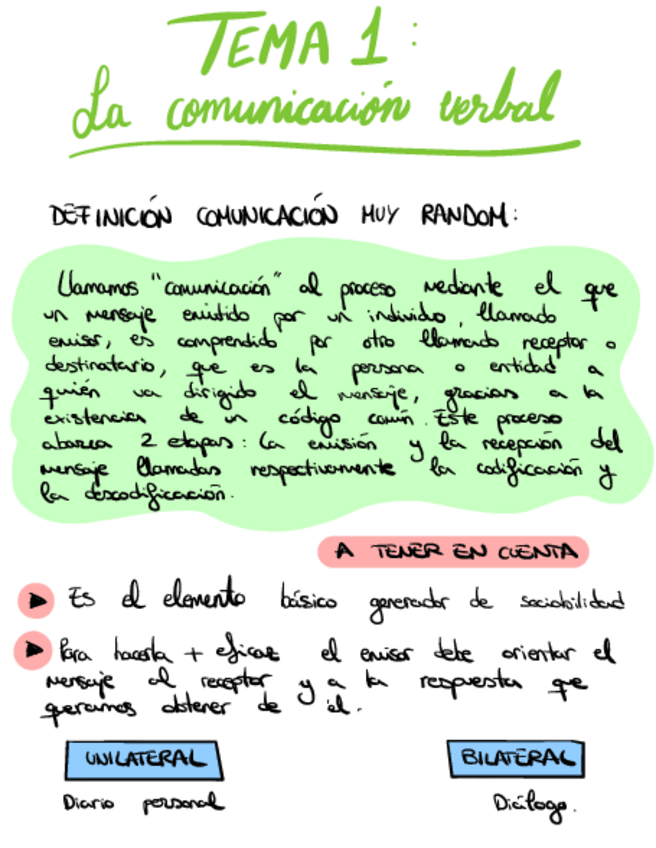 TEMA 1:
La comunicación verbal
DEFINICIÓN COMUNICACIÓN MUY RANDOM:
Llamamos "comunicación" al proceso mediante el que
un mensaje emitido por un individuo, llamado
emisor, es comprendido por otro llamado receptor o
destinatario, que es la persona o entidad a
quién va dirigido el mensaje, gracias a la
existencia de un código común. Este proceso
abarca 2 etapas: la emisión y la recepción del
mensaje llamadas respectivamente la codificación y
la descodificación.
A TENER EN CUENTA
Es el elemento básico generador de sociabilidad
Para hacerla + eficaz el emisor debe orientar el
mensaje al receptor y a la respuesta que
queramos obtener de él.
UNILATERAL BILATERAL
Diario personal Diálogo.